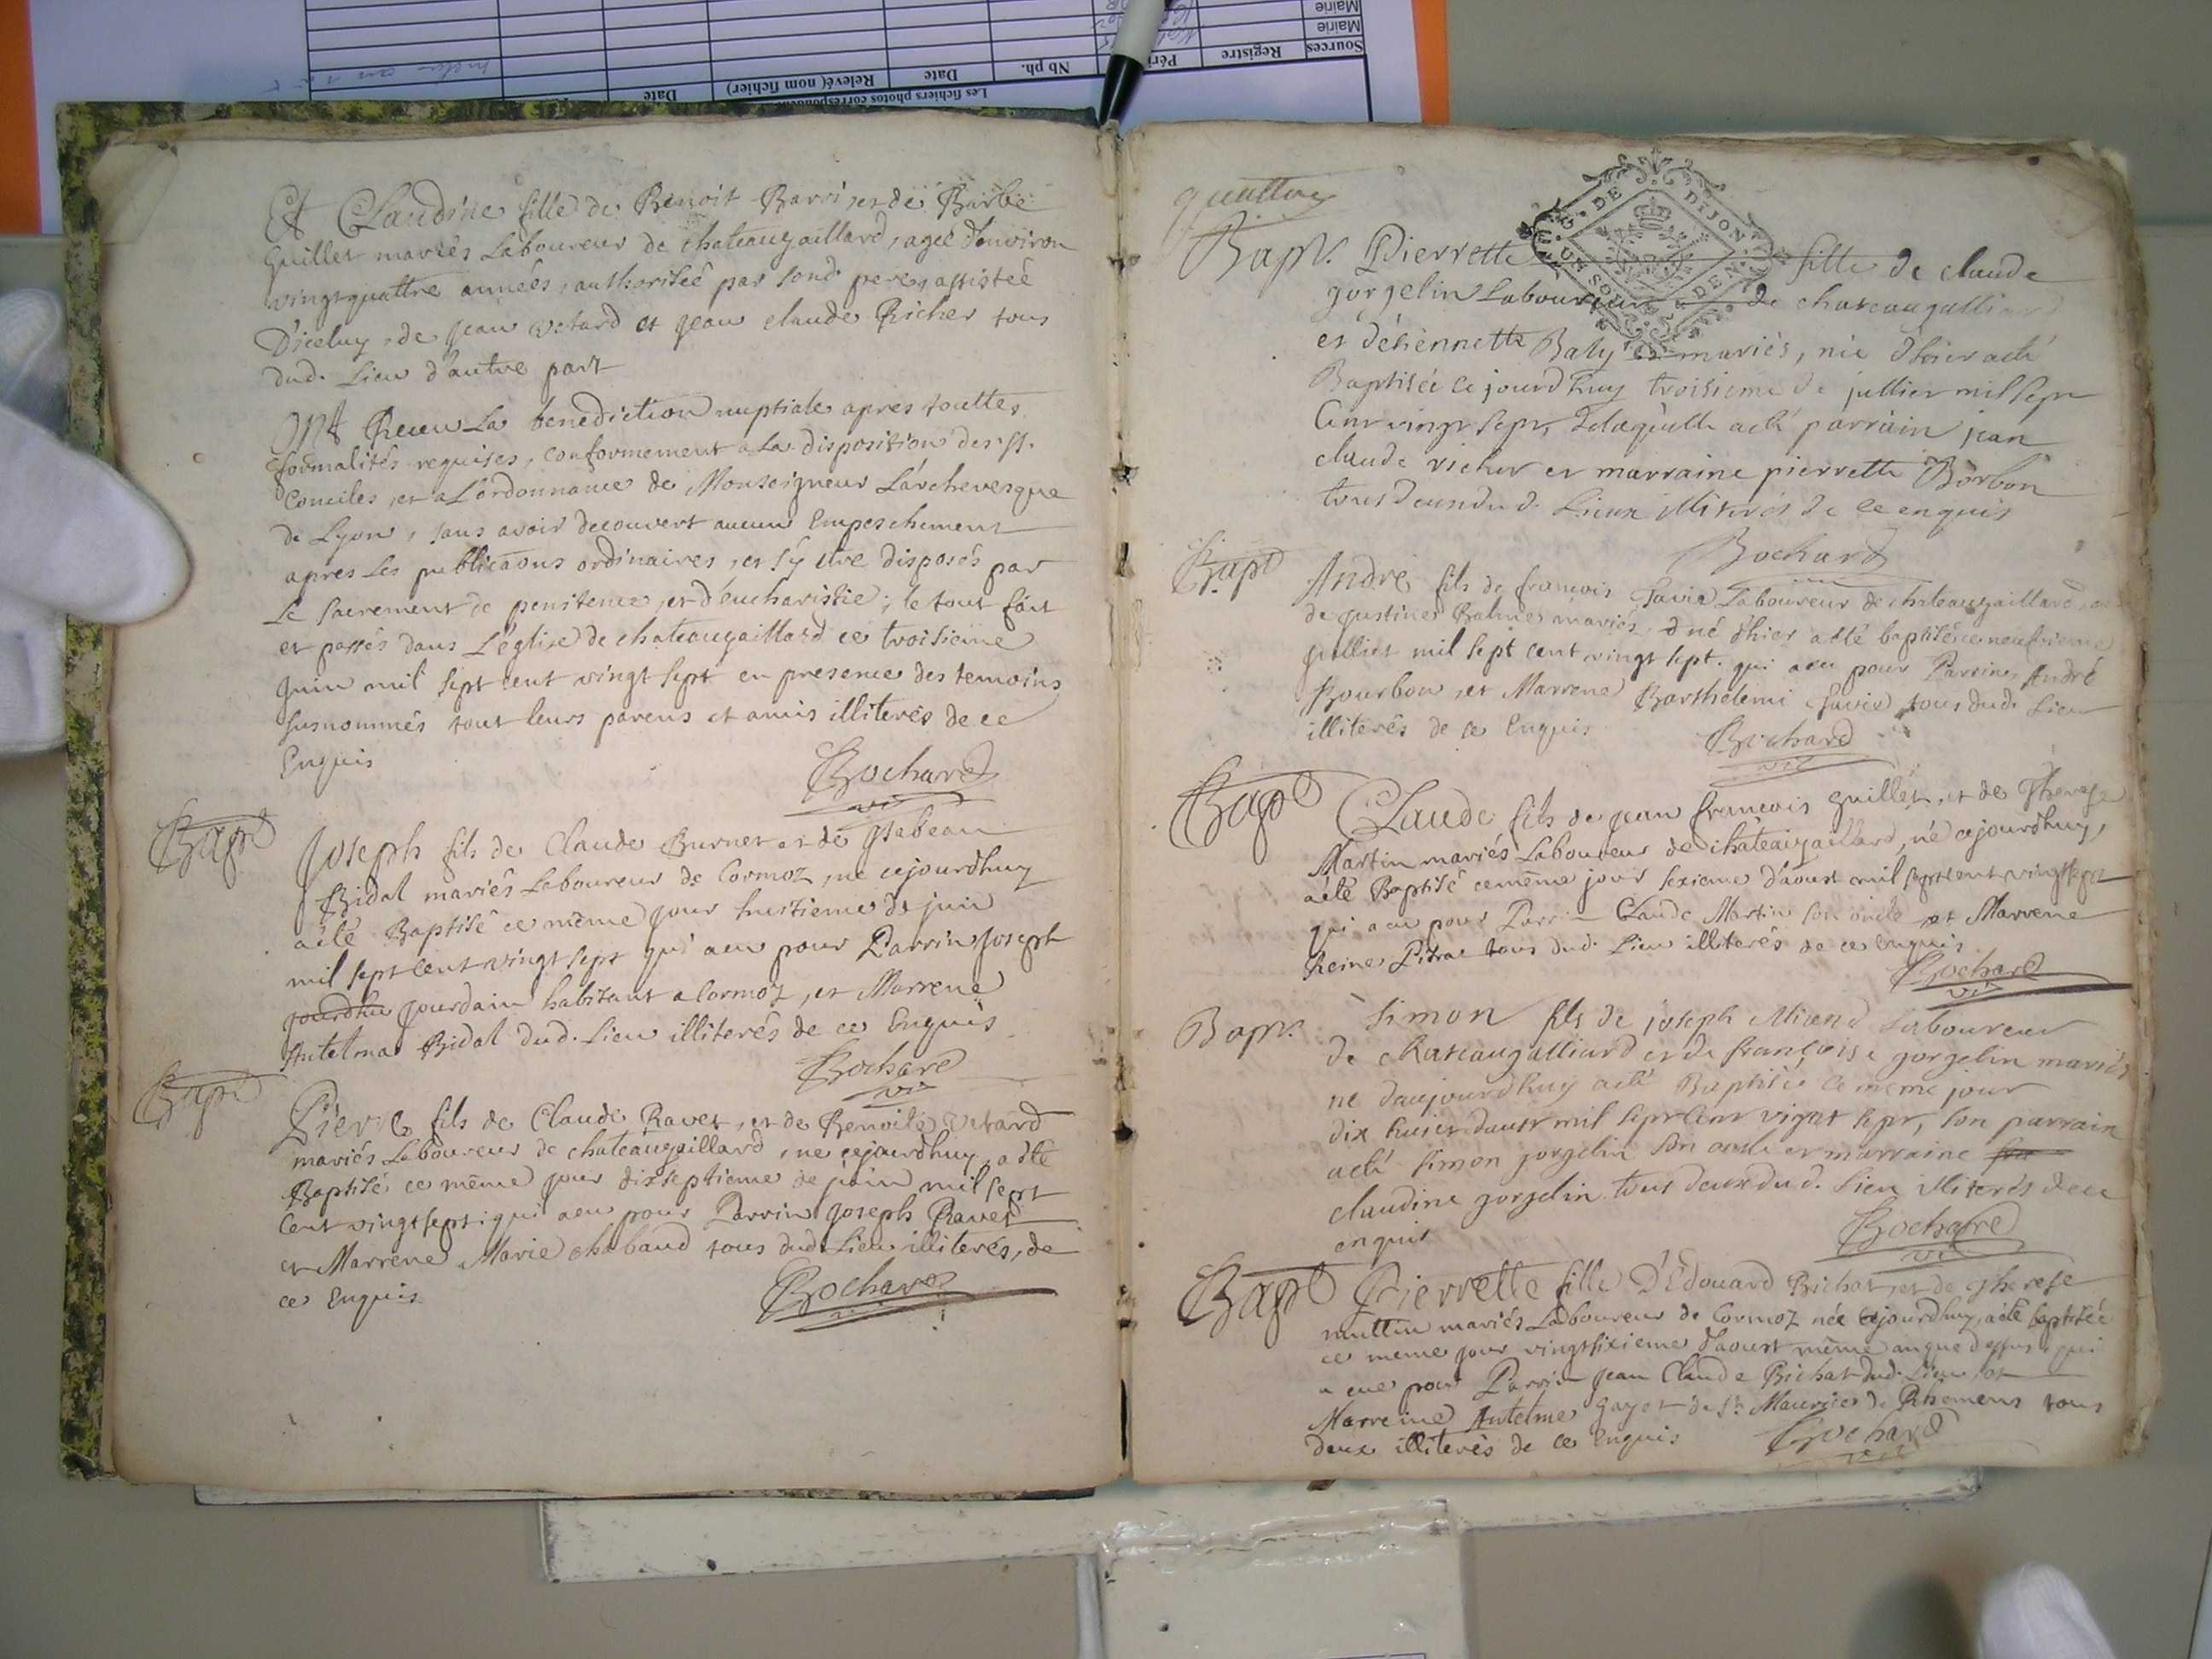 Sources
Registre
Péri
Nb ph.
Date
Relevé( nom fichier)
Date
Mairie
Mairie
Les fichiers photos
Et Claudine fille de Benoit Barri, et de Barbe
Guillet mariés Laboureur de chateaugaillard, agée d'environ
vingt quattre années, authorisée par sond. pere, assistée
D'iceluy, de Jean Vetard et Jean claude Richer tous
dud. Lieu d'autre part
Ont Receu La benediction nuptiale apres touttes
formalités requises, conformement a La disposition des SS.
Conciles, et a L'ordonnance de Monseigneur L'archevesque
de Lyon, sans avoir decouvert aucun Empeschement
apres Les publicaons ordinaires, et s'y etre disposés par
Le sacrement de penitence, et d'eucharistie; le tout fait
et passés dans L'église de chateaugaillard ce troisieme
Juin mil sept cent vingt sept en presence des temoins
susnommés tout leurs parens et amis illiterés de ce
Enquis
Bochard
vic
Bapt Joseph fils de Claude Burnet et de Isabeau
Bidal mariés Laboureur de Cormoz, né cejourdhuy
a été Baptisé ce même jour huitieme de juin
mil sept cent vingt sept qui a eu pour Parrin Joseph
jourdhu jourdain habitant a Cormoz, et Marrene
Antelma Bidal dud. Lieu illiterés de ce Enquis
Bochard
vic
Bapt Pierre fils de Claude Ravet, et de Benoite Vetard
mariés Laboureur de chateaugaillard, ne cejourdhuy, a été
Baptisé ce même jour dixseptieme de juin mil sept
Cent vingt sept, qui a eu pour Parrin Joseph Ravet
et Marrene Marie chabaud tous dud. Lieu illiterés, de
ce Enquis
Bochard
quattre
G. DE DIJON
Bapt. Pierrette fille de claude
gorgelin Laboureur de chateaugalliard
et d'étiennette Baly mariés, née d'hier a été
Baptisée ce jourd'huy troisieme de jullier mil sept
Cent vingt sept, de laquelle a été parrain jean
claude richer et marraine pierrette Borbon
tous deux du d. Lieux illiterés de ce enquis
Bochard
Bapt André fils de francois Savie Laboureur de chateaugaillard, et
de Justine Balme mariés, né d'hier a été baptisé ce neufvieme
Julliet mil sept cent vingt sept. qui a eu pour Parrin André
Bourbon, et Marrene Barthelemi Savie, tous dud. Lieu
illiterés de ce Enquis
Bochard
vic
Bapt Claude fils de Jean francois Guillet, et de Therese
Martin mariés Laboureur de chateaugaillard, né cejourdhuy,
a été Baptisé ce même jour sixieme d'aoust mil sept cent vingt sept
qui a eu pour Parrin Claude Martin son oncle et Marrene
Reine Pitra tous dud. Lieu illiterés de ce Enquis
Bochard
vic
Bapt. Simon fils de joseph Mirend Laboureur
de chateaugalliard et de françoise gorgelin mariés
ne d'aujourdhuy a été Baptisé ce meme jour
dix huict d'aust mil sept cent vignt sept, son parrain
a été Simon gorgelin son oncle et marraine
claudine gorgelin tous deux du d. Lieu illiterés de ce
enquis
Bochard
vic
Bapt Pierrette fille D'Edouard Bichat, et de Therese
muttin mariés Laboureur de Cormoz née cejourdhuy, a été baptisée
ce même jour vingt sixieme d'aoust même an que dessus, qui
a eue pour Parrin Jean Claude Bichat dud. Lieu, et
Marreine Antelme Gayet de St. Maurice de Rhemens tous
deux illiterés de ce Enquis
Bochard
vic